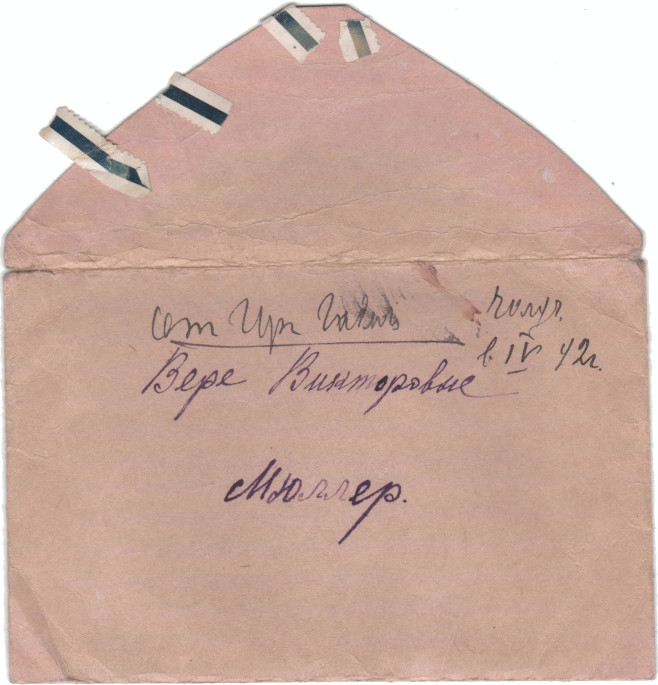 от
получ.
в IV 42г.
Вере Викторовне
Мюллер.